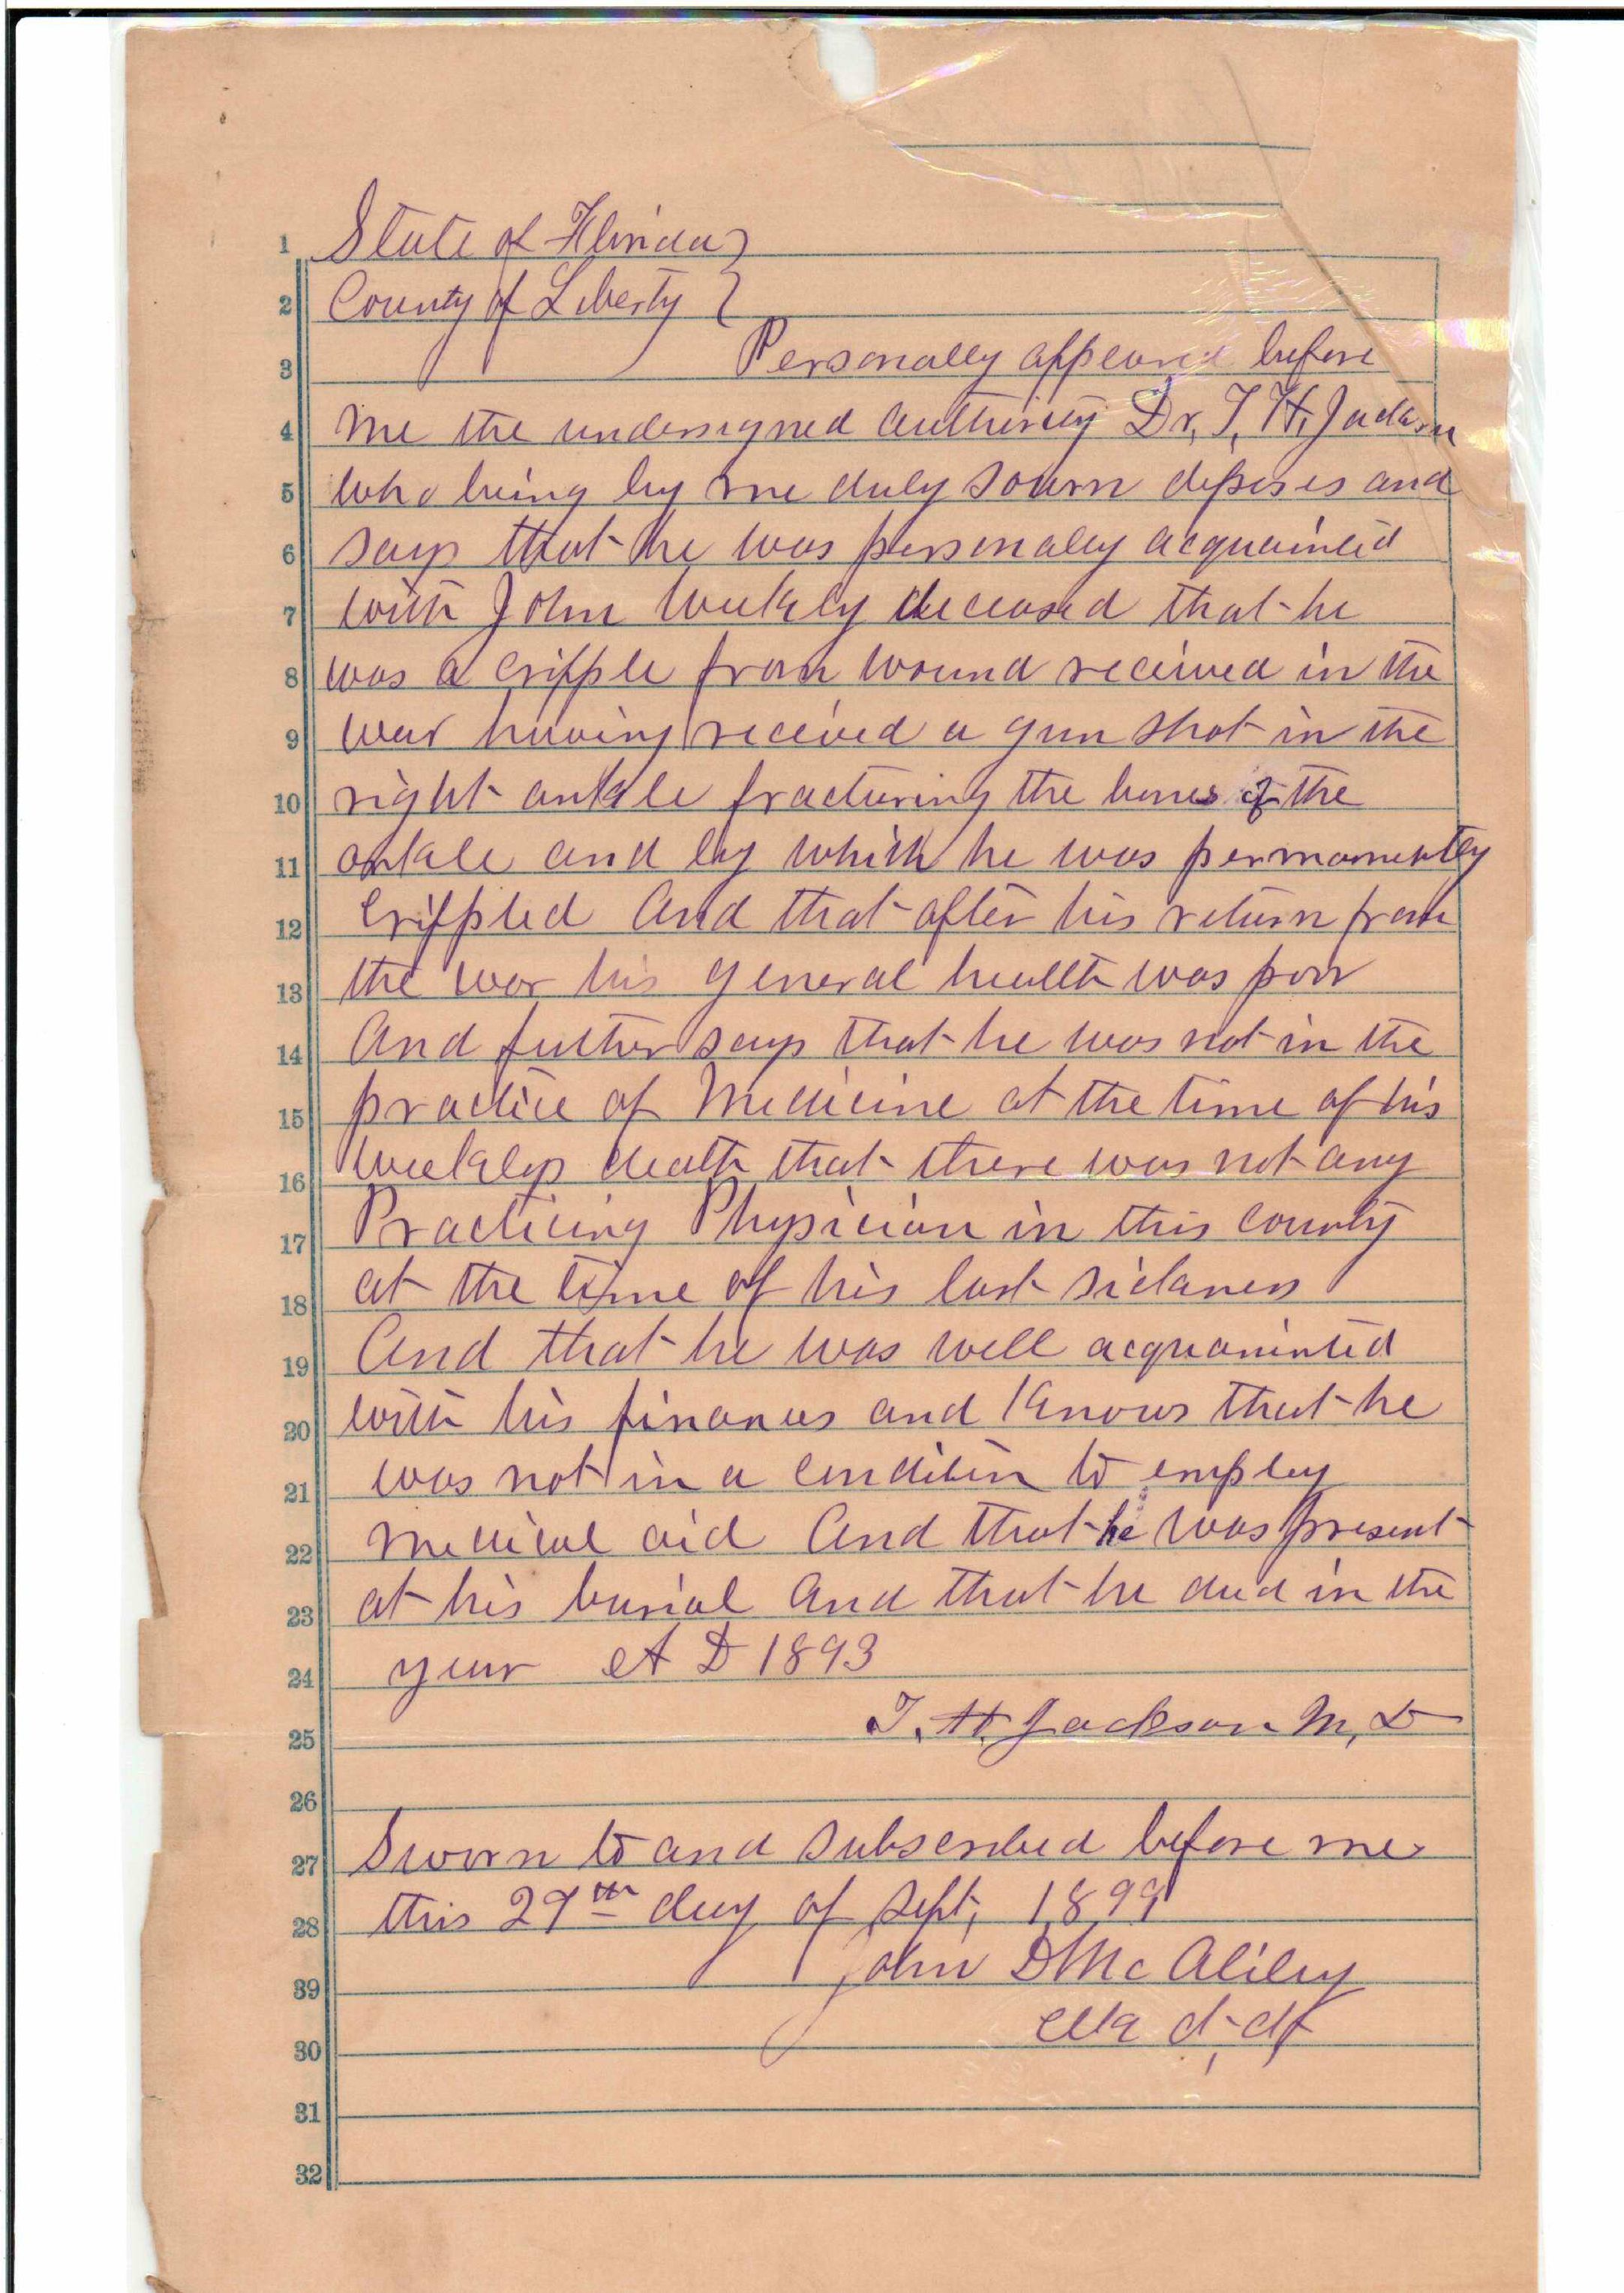 1 State of Florida }
2 County of Liberty }
3 Personally appeared before
4 me the undersigned authority Dr. T. H. Jackson
5 who being by me duly sowrn deposes and
6 says that he was personaley acquainted
7 with John Weekley deceased that he
8 was a cripple from wound received in the
9 war having received a gun shot in the
10 right ankle fracturing the bones of the
11 ankle and by which he was permamently
12 crippled And that after his return from
13 the war his general health was poor
14 And futher says that he was not in the
15 practice of Medicine at the time of his
16 Weekleys death that there was not any
17 Practicing Physician in this county
18 at the time of his last sickness
19 And that he was well acquaninted
20 with his finances and Knows that he
21 was not in a condition to employ
22 medical aid And that he was present
23 at his burial And that he died in the
24 year A D 1893
25 T. H. Jackson M. D
26
27 Sworn to and subscribed before me
28 this 29th day of Sept, 1899
39 John D McAliley
30
31
32